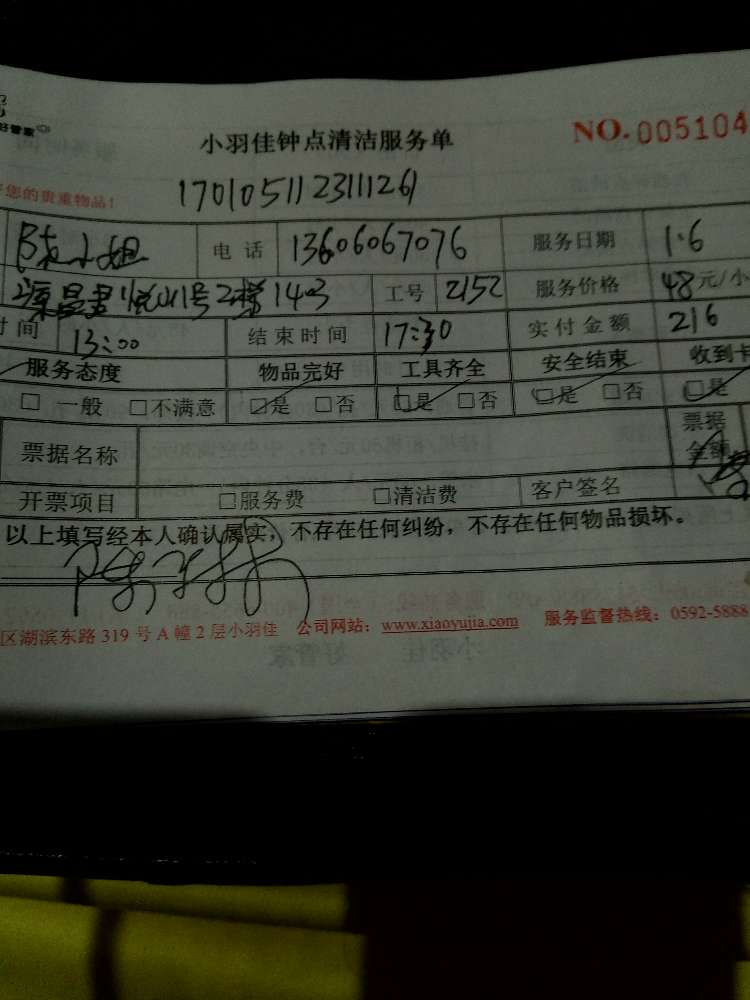 好管家
小羽佳钟点清洁服务单 NO. 005104
您的贵重物品!
17010511231111261
陈小姐 电话 13606067076 服务日期 1.6
1号2楼1403 工号 2152 服务价格 48元/小
时间 13:00 结束时间 17:30 实付金额 216
服务态度 物品完好 工具齐全 安全结束 收到卡
□ 一般 □不满意 □是 □否 □是 □否 □是 □否 □是
票据名称 票据金额
开票项目 □服务费 □清洁费 客户签名
以上填写经本人确认属实,不存在任何纠纷,不存在任何物品损坏。
区湖滨东路 319 号 A 幢 2 层小羽佳 公司网站:www.xiaoyujia.com 服务监督热线:0592-5888